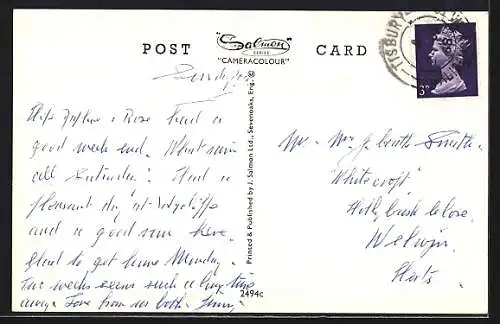 POST "Salmon SERIES CARD
"CAMERACOLOUR"
TISBURY
3D
Sunday
Daphne & Rose had a
good week end. What rain
all Saturday! Had a
pleasant day at Wycliffe
and a good run here.
Glad to get home Monday.
Two weeks seems such a long time
away. Love from us both.
Printed & Published by J. Salmon Ltd., Sevenoaks, Eng. ©
2494c
Mr. Mrs J. Smith.
'Whitecroft'
Hollybush Close.
Welwyn.
Herts.